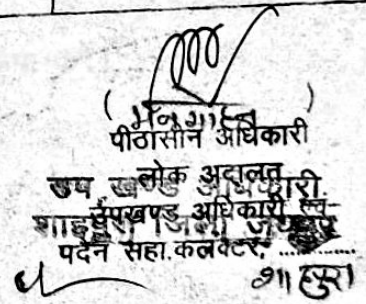 पीठासीन अधिकारी
लोक अदालत
उप खण्ड अधिकारी
उपखण्ड अधिकारी एवं
शाहपुरा जिला जयपुर
पदेन सहा. कलक्टर, ............
शाहपुरा